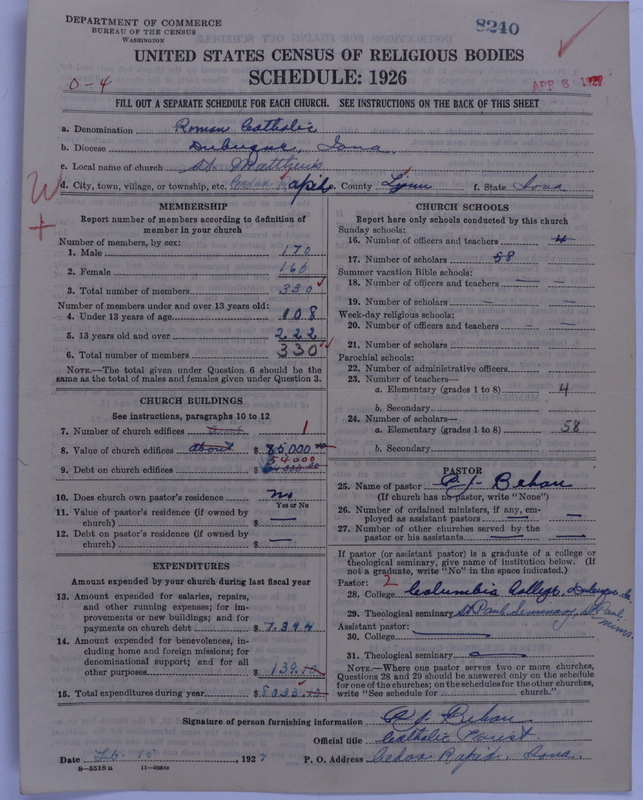 DEPARTMENT OF COMMERCE
BUREAU OF THE CENSUS
WASHINGTON
8240
UNITED STATES CENSUS OF RELIGIOUS BODIES
SCHEDULE: 1926
0-4
APR 8 1927
FILL OUT A SEPARATE SCHEDULE FOR EACH CHURCH. SEE INSTRUCTIONS ON THE BACK OF THIS SHEET
a. Denomination Roman Catholic
b. Diocese Dubuque, Iowa
c. Local name of church St. Matthews
d. City, town, village, or township, etc. Cedar Rapids County Lynn f. State Iowa
MEMBERSHIP
Report number of members according to definition of
member in your church
Number of members, by sex:
1. Male 170
2. Female 160
3. Total number of members 330
Number of members under and over 13 years old:
4. Under 13 years of age 108
5. 13 years old and over 222
6. Total number of members 330
NOTE.—The total given under Question 6 should be the
same as the total of males and females given under Question 3.
CHURCH BUILDINGS
See instructions, paragraphs 10 to 12
7. Number of church edifices 1
8. Value of church edifices about $ 85,000
9. Debt on church edifices $ 54000
10. Does church own pastor's residence No
Yes or No
11. Value of pastor's residence (if owned by
church) $ —
12. Debt on pastor's residence (if owned by
church) $ —
EXPENDITURES
Amount expended by your church during last fiscal year
13. Amount expended for salaries, repairs,
and other running expenses; for im-
provements or new buildings; and for
payments on church debt $ 7,394
14. Amount expended for benevolences, in-
cluding home and foreign missions; for
denominational support; and for all
other purposes $ 139
15. Total expenditures during year $
CHURCH SCHOOLS
Report here only schools conducted by this church
Sunday schools:
16. Number of officers and teachers 4
17. Number of scholars 58
Summer vacation Bible schools:
18. Number of officers and teachers — —
19. Number of scholars — —
Week-day religious schools:
20. Number of officers and teachers — —
21. Number of scholars
Parochial schools:
22. Number of administrative officers
23. Number of teachers—
a. Elementary (grades 1 to 8) 4
b. Secondary
24. Number of scholars—
a. Elementary (grades 1 to 8) 58
b. Secondary
PASTOR
25. Name of pastor P. J. Behan
(If church has no pastor, write "None")
26. Number of ordained ministers, if any, em-
ployed as assistant pastors — —
27. Number of other churches served by the
pastor or his assistants — —
If pastor (or assistant pastor) is a graduate of a college or
theological seminary, give name of institution below. (If
not a graduate, write "No" in the space indicated.)
Pastor: 2
28. College Columbia College, Dubuque, Ia
29. Theological seminary St Paul Seminary, St Paul, Minn
Assistant pastor:
30. College
31. Theological seminary
NOTE.—Where one pastor serves two or more churches,
Questions 28 and 29 should be answered only on the schedule
for one of the churches; on the schedules for the other churches,
write "See schedule for church."
Signature of person furnishing information P. J. Behan
Official title Catholic Priest
Date Feb. 15, 1927 P. O. Address Cedar Rapids, Iowa.
8—5518a